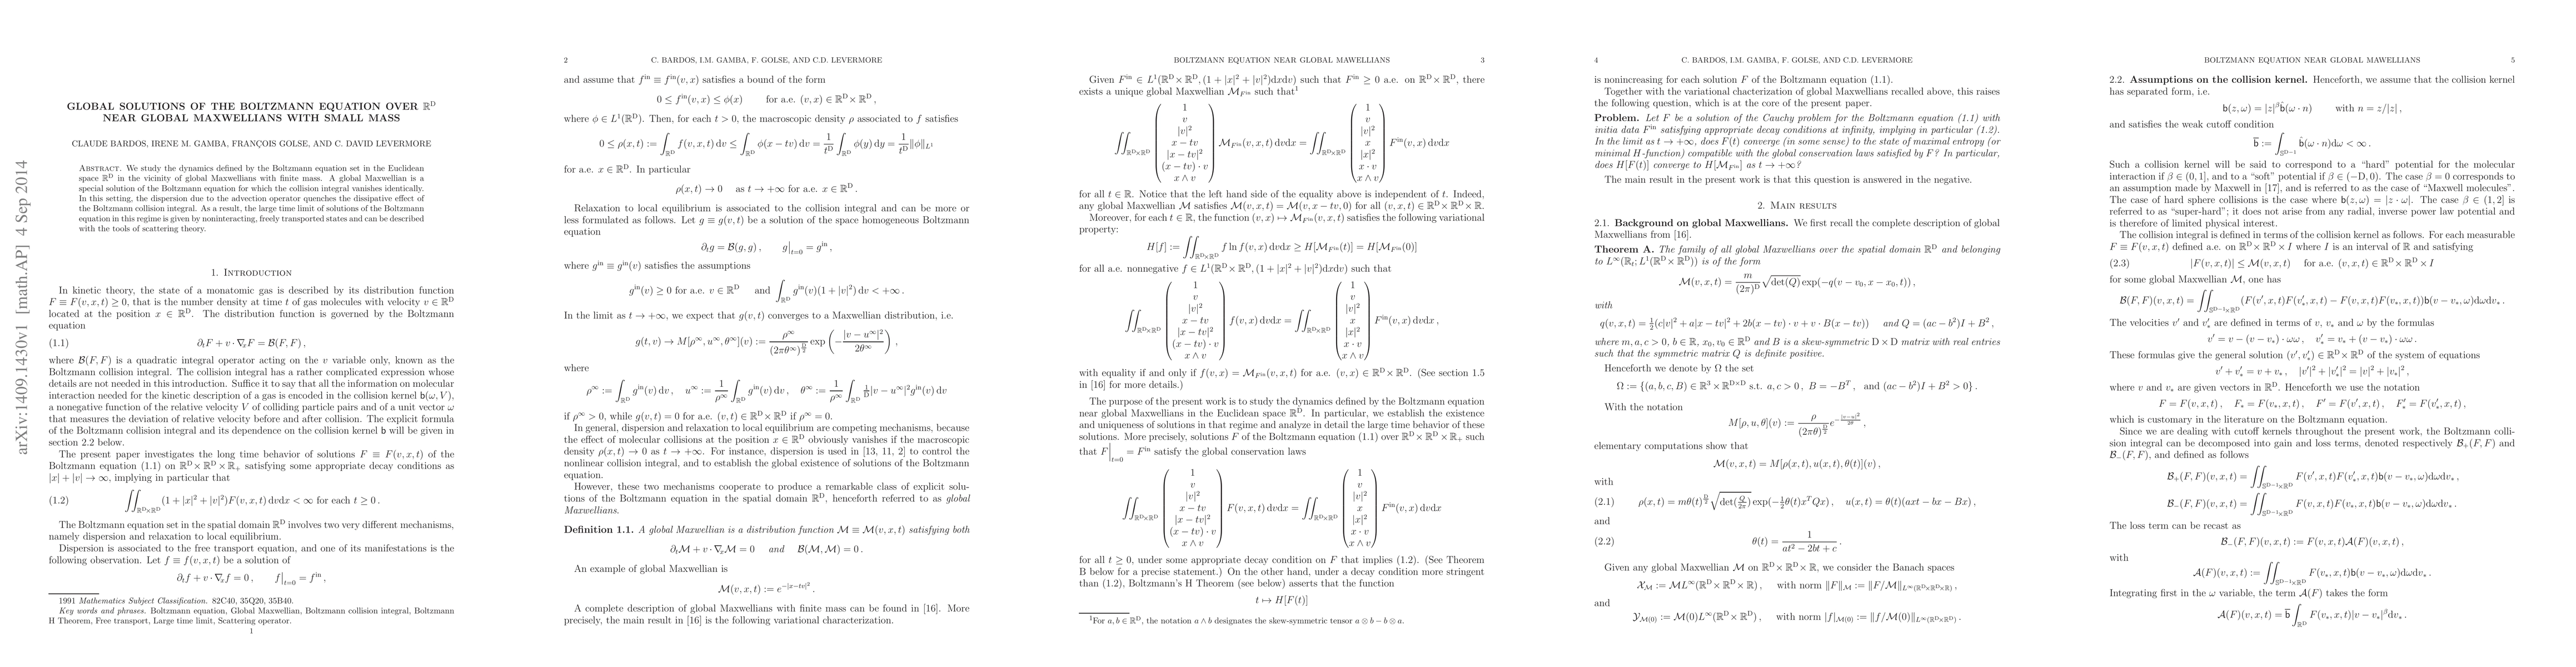 arXiv:1409.1430v1 [math.AP] 4 Sep 2014
GLOBAL SOLUTIONS OF THE BOLTZMANN EQUATION OVER ℝᴰ
NEAR GLOBAL MAXWELLIANS WITH SMALL MASS
CLAUDE BARDOS, IRENE M. GAMBA, FRANÇOIS GOLSE, AND C. DAVID LEVERMORE
ABSTRACT. We study the dynamics defined by the Boltzmann equation set in the Euclidean
space ℝᴰ in the vicinity of global Maxwellians with finite mass. A global Maxwellian is a
special solution of the Boltzmann equation for which the collision integral vanishes identically.
In this setting, the dispersion due to the advection operator quenches the dissipative effect of
the Boltzmann collision integral. As a result, the large time limit of solutions of the Boltzmann
equation in this regime is given by noninteracting, freely transported states and can be described
with the tools of scattering theory.
1. INTRODUCTION
In kinetic theory, the state of a monatomic gas is described by its distribution function
F ≡ F(v, x, t) ≥ 0, that is the number density at time t of gas molecules with velocity v ∈ ℝᴰ
located at the position x ∈ ℝᴰ. The distribution function is governed by the Boltzmann
equation
(1.1) ∂ₜF + v · ∇ₓF = 𝓑(F, F) ,
where 𝓑(F, F) is a quadratic integral operator acting on the v variable only, known as the
Boltzmann collision integral. The collision integral has a rather complicated expression whose
details are not needed in this introduction. Suffice it to say that all the information on molecular
interaction needed for the kinetic description of a gas is encoded in the collision kernel b(ω, V),
a nonnegative function of the relative velocity V of colliding particle pairs and of a unit vector ω
that measures the deviation of relative velocity before and after collision. The explicit formula
of the Boltzmann collision integral and its dependence on the collision kernel b will be given in
section 2.2 below.
The present paper investigates the long time behavior of solutions F ≡ F(v, x, t) of the
Boltzmann equation (1.1) on ℝᴰ × ℝᴰ × ℝ₊ satisfying some appropriate decay conditions as
|x| + |v| → ∞, implying in particular that
(1.2) ∬_{ℝᴰ×ℝᴰ} (1 + |x|² + |v|²)F(v, x, t) dvdx < ∞ for each t ≥ 0 .
The Boltzmann equation set in the spatial domain ℝᴰ involves two very different mechanisms,
namely dispersion and relaxation to local equilibrium.
Dispersion is associated to the free transport equation, and one of its manifestations is the
following observation. Let f ≡ f(v, x, t) be a solution of
∂ₜf + v · ∇ₓf = 0 , f|ₜ₌₀ = fⁱⁿ ,
1991 Mathematics Subject Classification. 82C40, 35Q20, 35B40.
Key words and phrases. Boltzmann equation, Global Maxwellian, Boltzmann collision integral, Boltzmann
H Theorem, Free transport, Large time limit, Scattering operator.
1
2 C. BARDOS, I.M. GAMBA, F. GOLSE, AND C.D. LEVERMORE
and assume that fⁱⁿ ≡ fⁱⁿ(v, x) satisfies a bound of the form
0 ≤ fⁱⁿ(v, x) ≤ ϕ(x) for a.e. (v, x) ∈ ℝᴰ × ℝᴰ ,
where ϕ ∈ L¹(ℝᴰ). Then, for each t > 0, the macroscopic density ρ associated to f satisfies
0 ≤ ρ(x, t) := ∫_{ℝᴰ} f(v, x, t) dv ≤ ∫_{ℝᴰ} ϕ(x − tv) dv = (1/tᴰ) ∫_{ℝᴰ} ϕ(y) dy = (1/tᴰ)‖ϕ‖_{L¹}
for a.e. x ∈ ℝᴰ. In particular
ρ(x, t) → 0 as t → +∞ for a.e. x ∈ ℝᴰ .
Relaxation to local equilibrium is associated to the collision integral and can be more or
less formulated as follows. Let g ≡ g(v, t) be a solution of the space homogeneous Boltzmann
equation
∂ₜg = 𝓑(g, g) , g|ₜ₌₀ = gⁱⁿ ,
where gⁱⁿ ≡ gⁱⁿ(v) satisfies the assumptions
gⁱⁿ(v) ≥ 0 for a.e. v ∈ ℝᴰ and ∫_{ℝᴰ} gⁱⁿ(v)(1 + |v|²) dv < +∞ .
In the limit as t → +∞, we expect that g(v, t) converges to a Maxwellian distribution, i.e.
g(t, v) → M[ρ^∞, u^∞, θ^∞](v) := ρ^∞/(2πθ^∞)^{D/2} exp(−|v − u^∞|²/2θ^∞) ,
where
ρ^∞ := ∫_{ℝᴰ} gⁱⁿ(v) dv , u^∞ := (1/ρ^∞) ∫_{ℝᴰ} v gⁱⁿ(v) dv , θ^∞ := (1/ρ^∞) ∫_{ℝᴰ} (1/D)|v − u^∞|² gⁱⁿ(v) dv
if ρ^∞ > 0, while g(v, t) = 0 for a.e. (v, t) ∈ ℝᴰ × ℝᴰ if ρ^∞ = 0.
In general, dispersion and relaxation to local equilibrium are competing mechanisms, because
the effect of molecular collisions at the position x ∈ ℝᴰ obviously vanishes if the macroscopic
density ρ(x, t) → 0 as t → +∞. For instance, dispersion is used in [13, 11, 2] to control the
nonlinear collision integral, and to establish the global existence of solutions of the Boltzmann
equation.
However, these two mechanisms cooperate to produce a remarkable class of explicit solu-
tions of the Boltzmann equation in the spatial domain ℝᴰ, henceforth referred to as global
Maxwellians.
Definition 1.1. A global Maxwellian is a distribution function 𝓜 ≡ 𝓜(v, x, t) satisfying both
∂ₜ𝓜 + v · ∇ₓ𝓜 = 0 and 𝓑(𝓜, 𝓜) = 0 .
An example of global Maxwellian is
𝓜(v, x, t) := e^{−|x−tv|²} .
A complete description of global Maxwellians with finite mass can be found in [16]. More
precisely, the main result in [16] is the following variational characterization.
BOLTZMANN EQUATION NEAR GLOBAL MAWELLIANS 3
Given Fⁱⁿ ∈ L¹(ℝᴰ × ℝᴰ, (1 + |x|² + |v|²)dxdv) such that Fⁱⁿ ≥ 0 a.e. on ℝᴰ × ℝᴰ, there
exists a unique global Maxwellian 𝓜_{Fⁱⁿ} such that¹
∬_{ℝᴰ×ℝᴰ} (1, v, |v|², x − tv, |x − tv|², (x − tv) · v, x ∧ v) 𝓜_{Fⁱⁿ}(v, x, t) dvdx = ∬_{ℝᴰ×ℝᴰ} (1, v, |v|², x, |x|², x · v, x ∧ v) Fⁱⁿ(v, x) dvdx
for all t ∈ ℝ. Notice that the left hand side of the equality above is independent of t. Indeed,
any global Maxwellian 𝓜 satisfies 𝓜(v, x, t) = 𝓜(v, x − tv, 0) for all (v, x, t) ∈ ℝᴰ × ℝᴰ × ℝ.
Moreover, for each t ∈ ℝ, the function (v, x) ↦ 𝓜_{Fⁱⁿ}(v, x, t) satisfies the following variational
property:
H[f] := ∬_{ℝᴰ×ℝᴰ} f ln f(v, x) dvdx ≥ H[𝓜_{Fⁱⁿ}(t)] = H[𝓜_{Fⁱⁿ}(0)]
for all a.e. nonnegative f ∈ L¹(ℝᴰ × ℝᴰ, (1 + |x|² + |v|²)dxdv) such that
∬_{ℝᴰ×ℝᴰ} (1, v, |v|², x − tv, |x − tv|², (x − tv) · v, x ∧ v) f(v, x) dvdx = ∬_{ℝᴰ×ℝᴰ} (1, v, |v|², x, |x|², x · v, x ∧ v) Fⁱⁿ(v, x) dvdx ,
with equality if and only if f(v, x) = 𝓜_{Fⁱⁿ}(v, x, t) for a.e. (v, x) ∈ ℝᴰ × ℝᴰ. (See section 1.5
in [16] for more details.)
The purpose of the present work is to study the dynamics defined by the Boltzmann equation
near global Maxwellians in the Euclidean space ℝᴰ. In particular, we establish the existence
and uniqueness of solutions in that regime and analyze in detail the large time behavior of these
solutions. More precisely, solutions F of the Boltzmann equation (1.1) over ℝᴰ × ℝᴰ × ℝ₊ such
that F|ₜ₌₀ = Fⁱⁿ satisfy the global conservation laws
∬_{ℝᴰ×ℝᴰ} (1, v, |v|², x − tv, |x − tv|², (x − tv) · v, x ∧ v) F(v, x, t) dvdx = ∬_{ℝᴰ×ℝᴰ} (1, v, |v|², x, |x|², x · v, x ∧ v) Fⁱⁿ(v, x) dvdx
for all t ≥ 0, under some appropriate decay condition on F that implies (1.2). (See Theorem
B below for a precise statement.) On the other hand, under a decay condition more stringent
than (1.2), Boltzmann's H Theorem (see below) asserts that the function
t ↦ H[F(t)]
¹For a, b ∈ ℝᴰ, the notation a ∧ b designates the skew-symmetric tensor a ⊗ b − b ⊗ a.
4 C. BARDOS, I.M. GAMBA, F. GOLSE, AND C.D. LEVERMORE
is nonincreasing for each solution F of the Boltzmann equation (1.1).
Together with the variational chacterization of global Maxwellians recalled above, this raises
the following question, which is at the core of the present paper.
Problem. Let F be a solution of the Cauchy problem for the Boltzmann equation (1.1) with
initia data Fⁱⁿ satisfying appropriate decay conditions at infinity, implying in particular (1.2).
In the limit as t → +∞, does F(t) converge (in some sense) to the state of maximal entropy (or
minimal H-function) compatible with the global conservation laws satisfied by F? In particular,
does H[F(t)] converge to H[𝓜_{Fⁱⁿ}] as t → +∞?
The main result in the present work is that this question is answered in the negative.
2. MAIN RESULTS
2.1. Background on global Maxwellians. We first recall the complete description of global
Maxwellians from [16].
Theorem A. The family of all global Maxwellians over the spatial domain ℝᴰ and belonging
to L^∞(ℝₜ; L¹(ℝᴰ × ℝᴰ)) is of the form
𝓜(v, x, t) = m/(2π)ᴰ √det(Q) exp(−q(v − v₀, x − x₀, t)) ,
with
q(v, x, t) = ½(c|v|² + a|x − tv|² + 2b(x − tv) · v + v · B(x − tv)) and Q = (ac − b²)I + B² ,
where m, a, c > 0, b ∈ ℝ, x₀, v₀ ∈ ℝᴰ and B is a skew-symmetric D × D matrix with real entries
such that the symmetric matrix Q is definite positive.
Henceforth we denote by Ω the set
Ω := {(a, b, c, B) ∈ ℝ³ × ℝ^{D×D} s.t. a, c > 0 , B = −Bᵀ , and (ac − b²)I + B² > 0} .
With the notation
M[ρ, u, θ](v) := ρ/(2πθ)^{D/2} e^{−|v−u|²/2θ} ,
elementary computations show that
𝓜(v, x, t) = M[ρ(x, t), u(x, t), θ(t)](v) ,
with
(2.1) ρ(x, t) = mθ(t)^{D/2} √det(Q/2π) exp(−½θ(t)xᵀQx) , u(x, t) = θ(t)(axt − bx − Bx) ,
and
(2.2) θ(t) = 1/(at² − 2bt + c) .
Given any global Maxwellian 𝓜 on ℝᴰ × ℝᴰ × ℝ, we consider the Banach spaces
𝓧_𝓜 := 𝓜L^∞(ℝᴰ × ℝᴰ × ℝ) , with norm ‖F‖_𝓜 := ‖F/𝓜‖_{L^∞(ℝᴰ×ℝᴰ×ℝ)} ,
and
𝓨_{𝓜(0)} := 𝓜(0)L^∞(ℝᴰ × ℝᴰ) , with norm |f|_{𝓜(0)} := ‖f/𝓜(0)‖_{L^∞(ℝᴰ×ℝᴰ)} .
BOLTZMANN EQUATION NEAR GLOBAL MAWELLIANS 5
2.2. Assumptions on the collision kernel. Henceforth, we assume that the collision kernel
has separated form, i.e.
b(z, ω) = |z|^β b̂(ω · n) with n = z/|z| ,
and satisfies the weak cutoff condition
b̄ := ∫_{𝕊^{D−1}} b̂(ω · n)dω < ∞ .
Such a collision kernel will be said to correspond to a "hard" potential for the molecular
interaction if β ∈ (0, 1], and to a "soft" potential if β ∈ (−D, 0). The case β = 0 corresponds to
an assumption made by Maxwell in [17], and is referred to as the case of "Maxwell molecules".
The case of hard sphere collisions is the case where b(z, ω) = |z · ω|. The case β ∈ (1, 2] is
referred to as "super-hard"; it does not arise from any radial, inverse power law potential and
is therefore of limited physical interest.
The collision integral is defined in terms of the collision kernel as follows. For each measurable
F ≡ F(v, x, t) defined a.e. on ℝᴰ × ℝᴰ × I where I is an interval of ℝ and satisfying
(2.3) |F(v, x, t)| ≤ 𝓜(v, x, t) for a.e. (v, x, t) ∈ ℝᴰ × ℝᴰ × I
for some global Maxwellian 𝓜, one has
𝓑(F, F)(v, x, t) = ∬_{𝕊^{D−1}×ℝᴰ} (F(v′, x, t)F(v′∗, x, t) − F(v, x, t)F(v∗, x, t))b(v − v∗, ω)dωdv∗ .
The velocities v′ and v′∗ are defined in terms of v, v∗ and ω by the formulas
v′ = v − (v − v∗) · ωω , v′∗ = v∗ + (v − v∗) · ωω .
These formulas give the general solution (v′, v′∗) ∈ ℝᴰ × ℝᴰ of the system of equations
v′ + v′∗ = v + v∗ , |v′|² + |v′∗|² = |v|² + |v∗|² ,
where v and v∗ are given vectors in ℝᴰ. Henceforth we use the notation
F = F(v, x, t) , F∗ = F(v∗, x, t) , F′ = F(v′, x, t) , F′∗ = F(v′∗, x, t) ,
which is customary in the literature on the Boltzmann equation.
Since we are dealing with cutoff kernels throughout the present work, the Boltzmann colli-
sion integral can be decomposed into gain and loss terms, denoted respectively 𝓑₊(F, F) and
𝓑₋(F, F), and defined as follows
𝓑₊(F, F)(v, x, t) = ∬_{𝕊^{D−1}×ℝᴰ} F(v′, x, t)F(v′∗, x, t)b(v − v∗, ω)dωdv∗ ,
𝓑₋(F, F)(v, x, t) = ∬_{𝕊^{D−1}×ℝᴰ} F(v, x, t)F(v∗, x, t)b(v − v∗, ω)dωdv∗ .
The loss term can be recast as
𝓑₋(F, F)(v, x, t) := F(v, x, t)𝓐(F)(v, x, t) ,
with
𝓐(F)(v, x, t) := ∬_{𝕊^{D−1}×ℝᴰ} F(v∗, x, t)b(v − v∗, ω)dωdv∗ .
Integrating first in the ω variable, the term 𝓐(F) takes the form
𝓐(F)(v, x, t) = b̄ ∫_{ℝᴰ} F(v∗, x, t)|v − v∗|^β dv∗ .